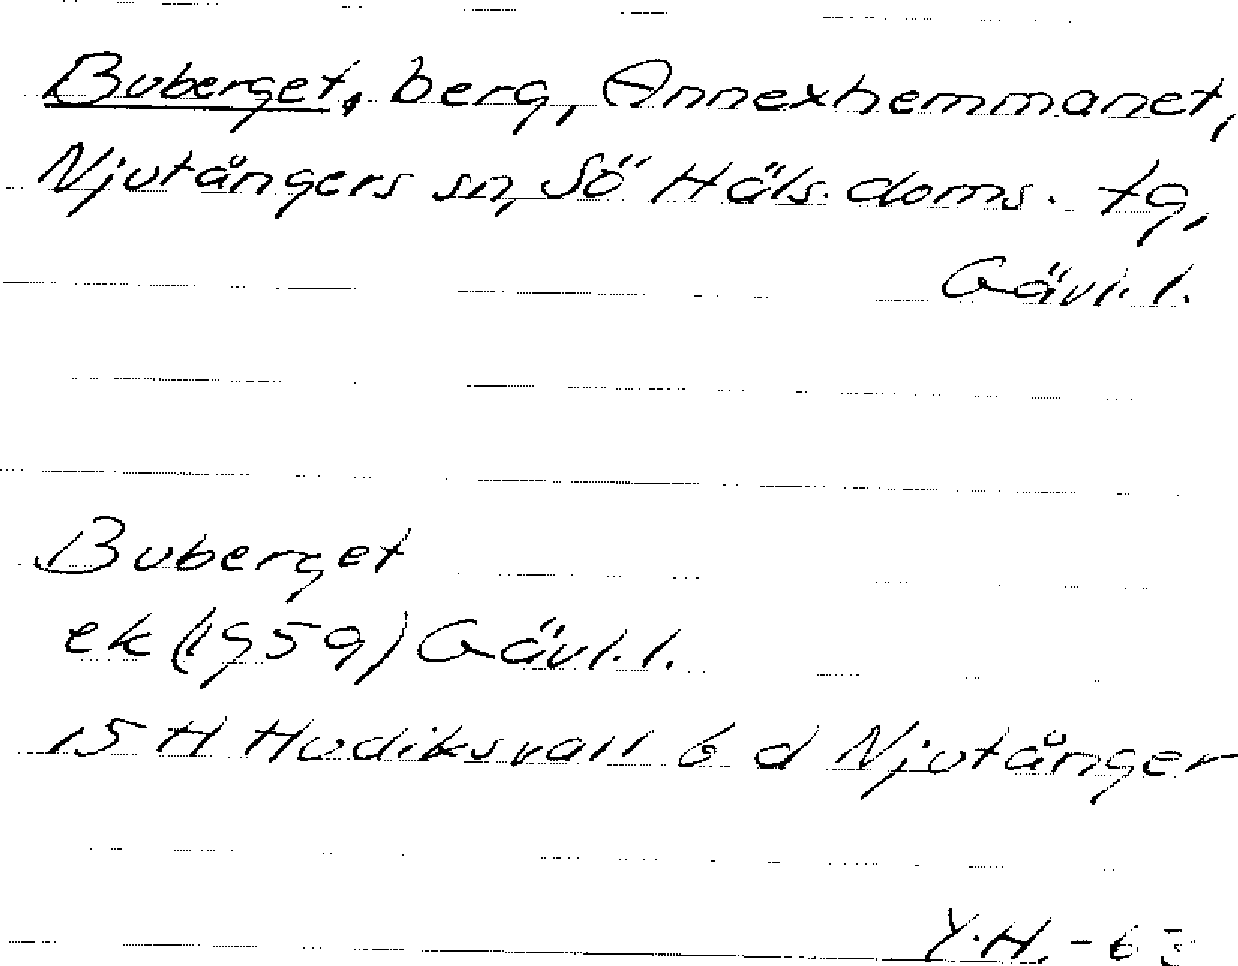 Buberget, berg, Annexhemmanet,
Njutångers sn, Sö Häls. doms. tg,
Gävl. l.
Buberget
ek (1959) Gävl. l.
15 H Hudiksvall 6 d Njutånger
Y.H. -63